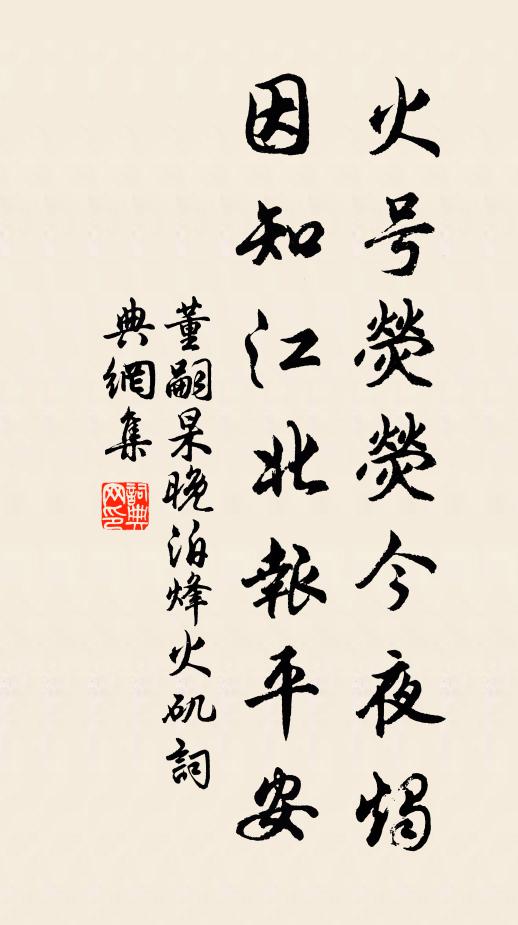 火号荧荧今夜燭
因知江北報平安
董嗣杲晚泊烽火矶詞
典網集
詞典网印